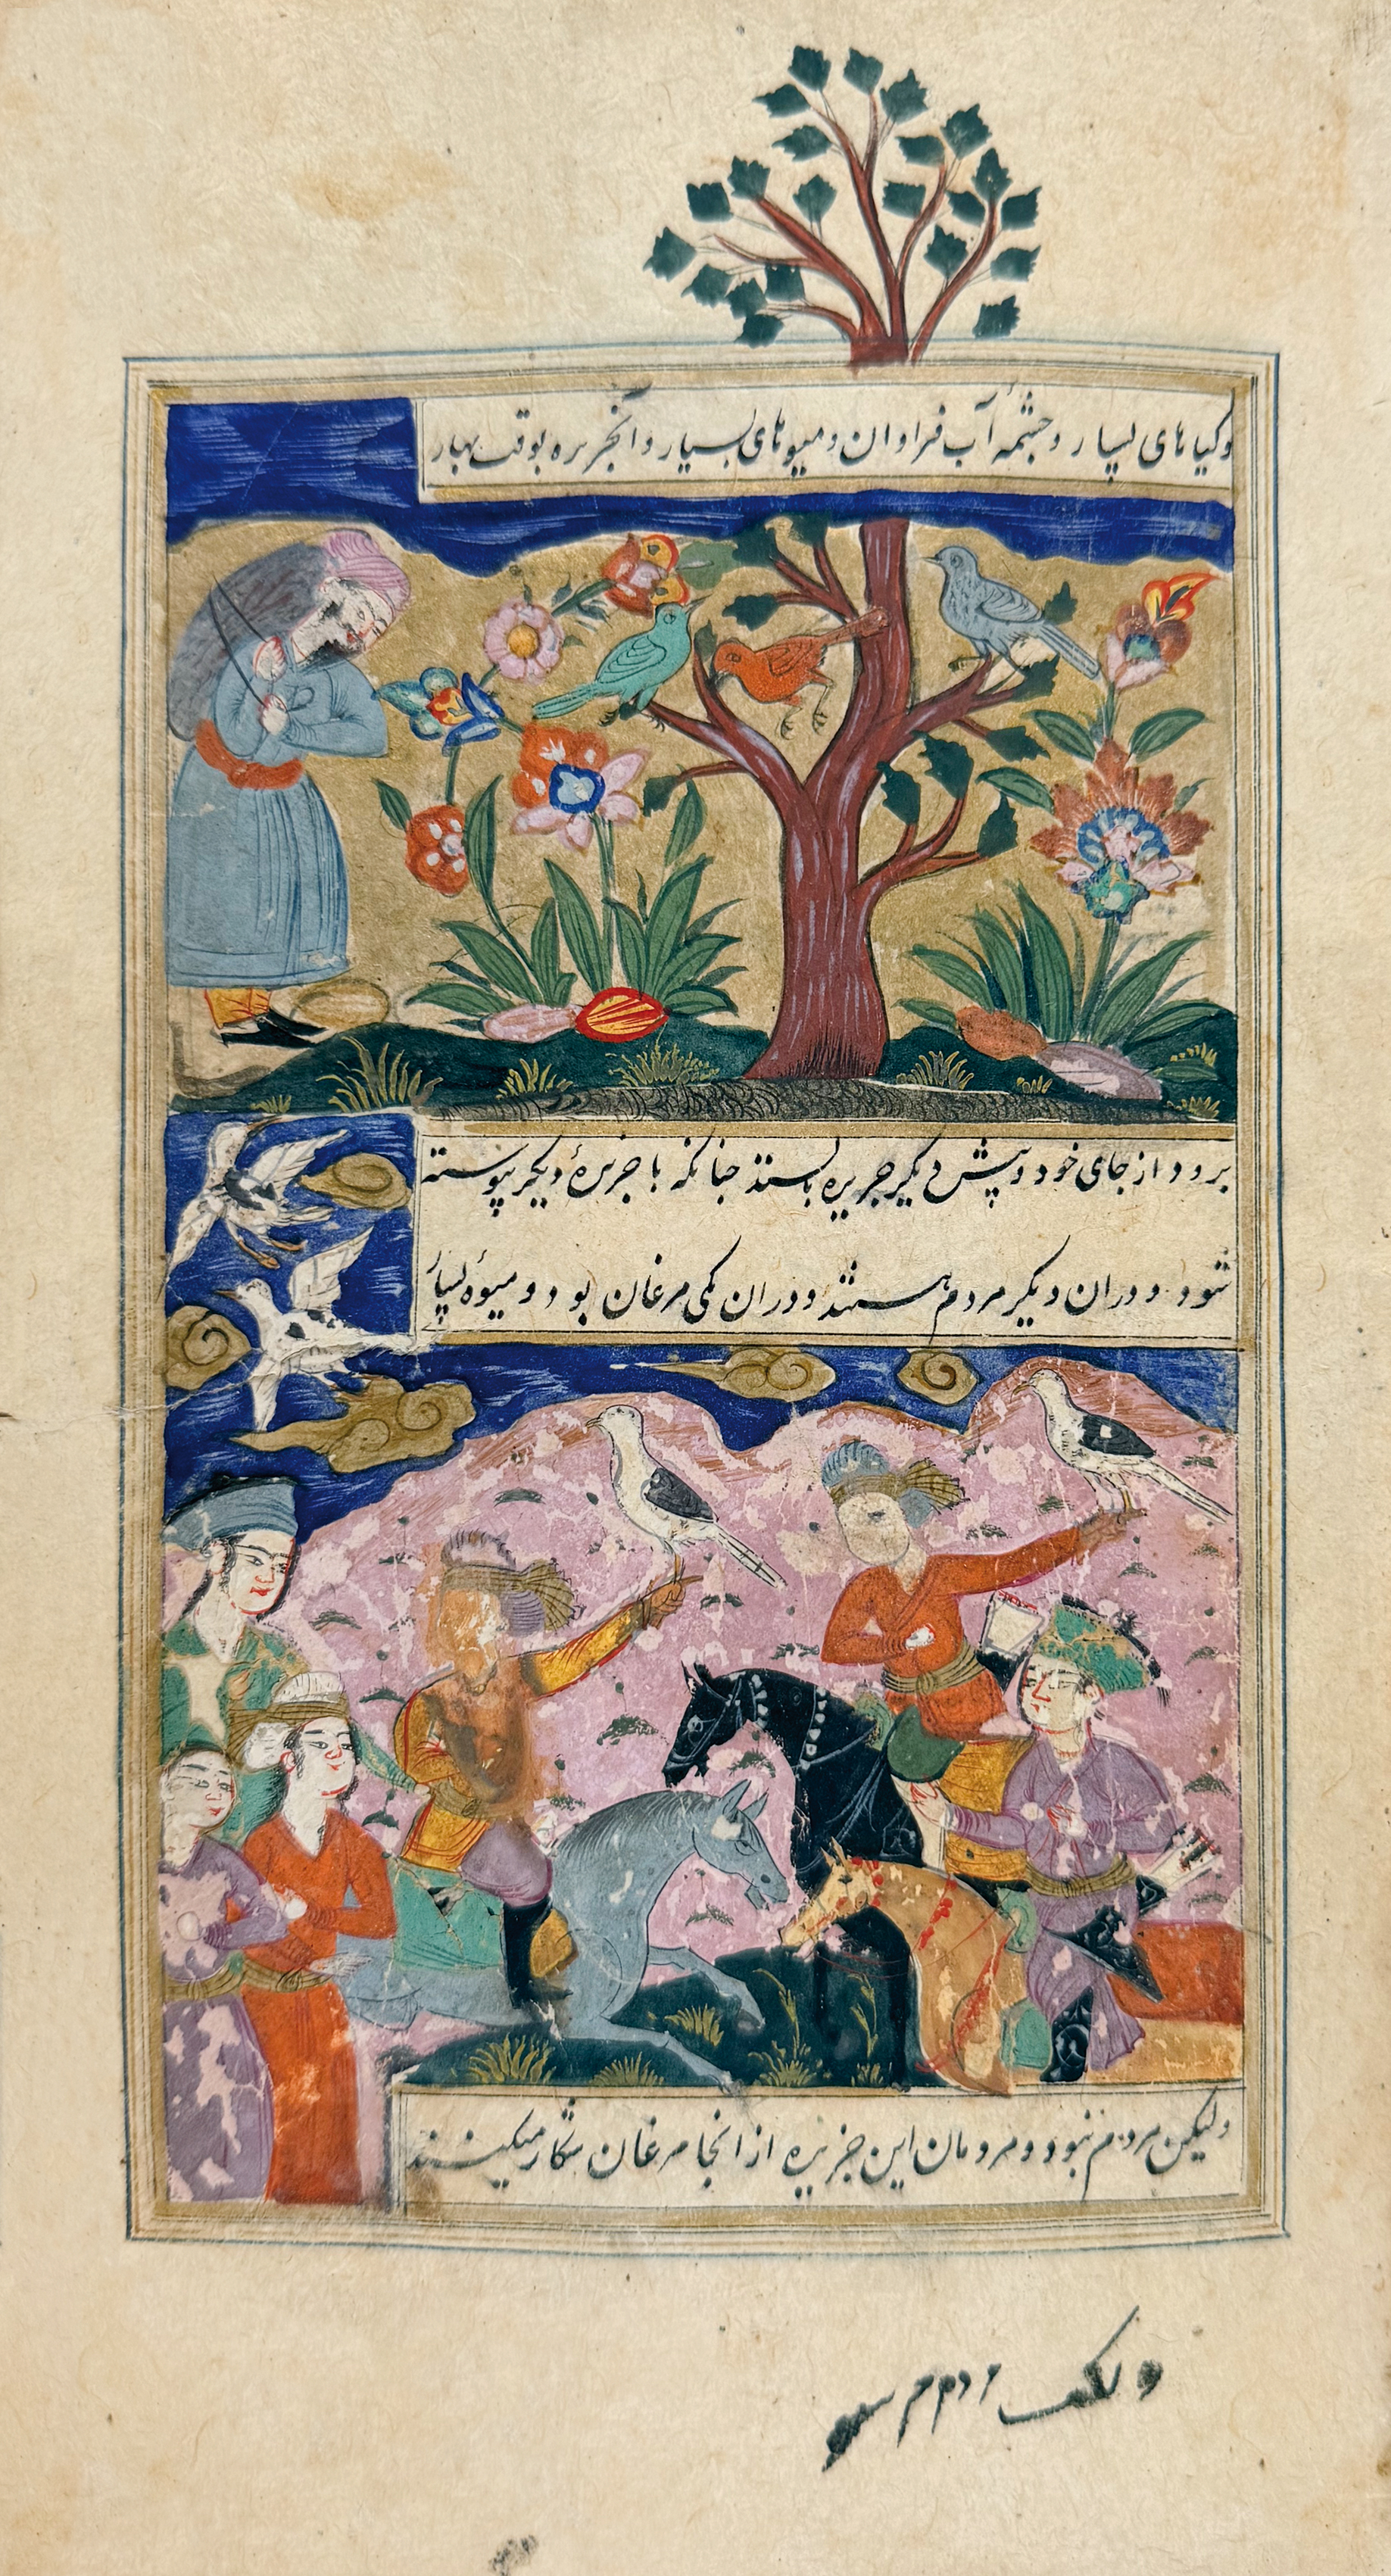 وکیاهای بسیار وچشمهٔ آب فراوان ومیوهای بسیار وآنجزیره بوقت بهار
برود از جای خود وپیش دیکر جزیره بایستد چنانکه با جزیرهٔ دیکر پیوسته
شود ودران دیکر مردم هستند ودران یکی مرغان بود ومیوهٔ بسیار
ولیکن مردم نبود ومردمان این جزیره از انجا مرغان شکار میکنند
ولیکن مردم